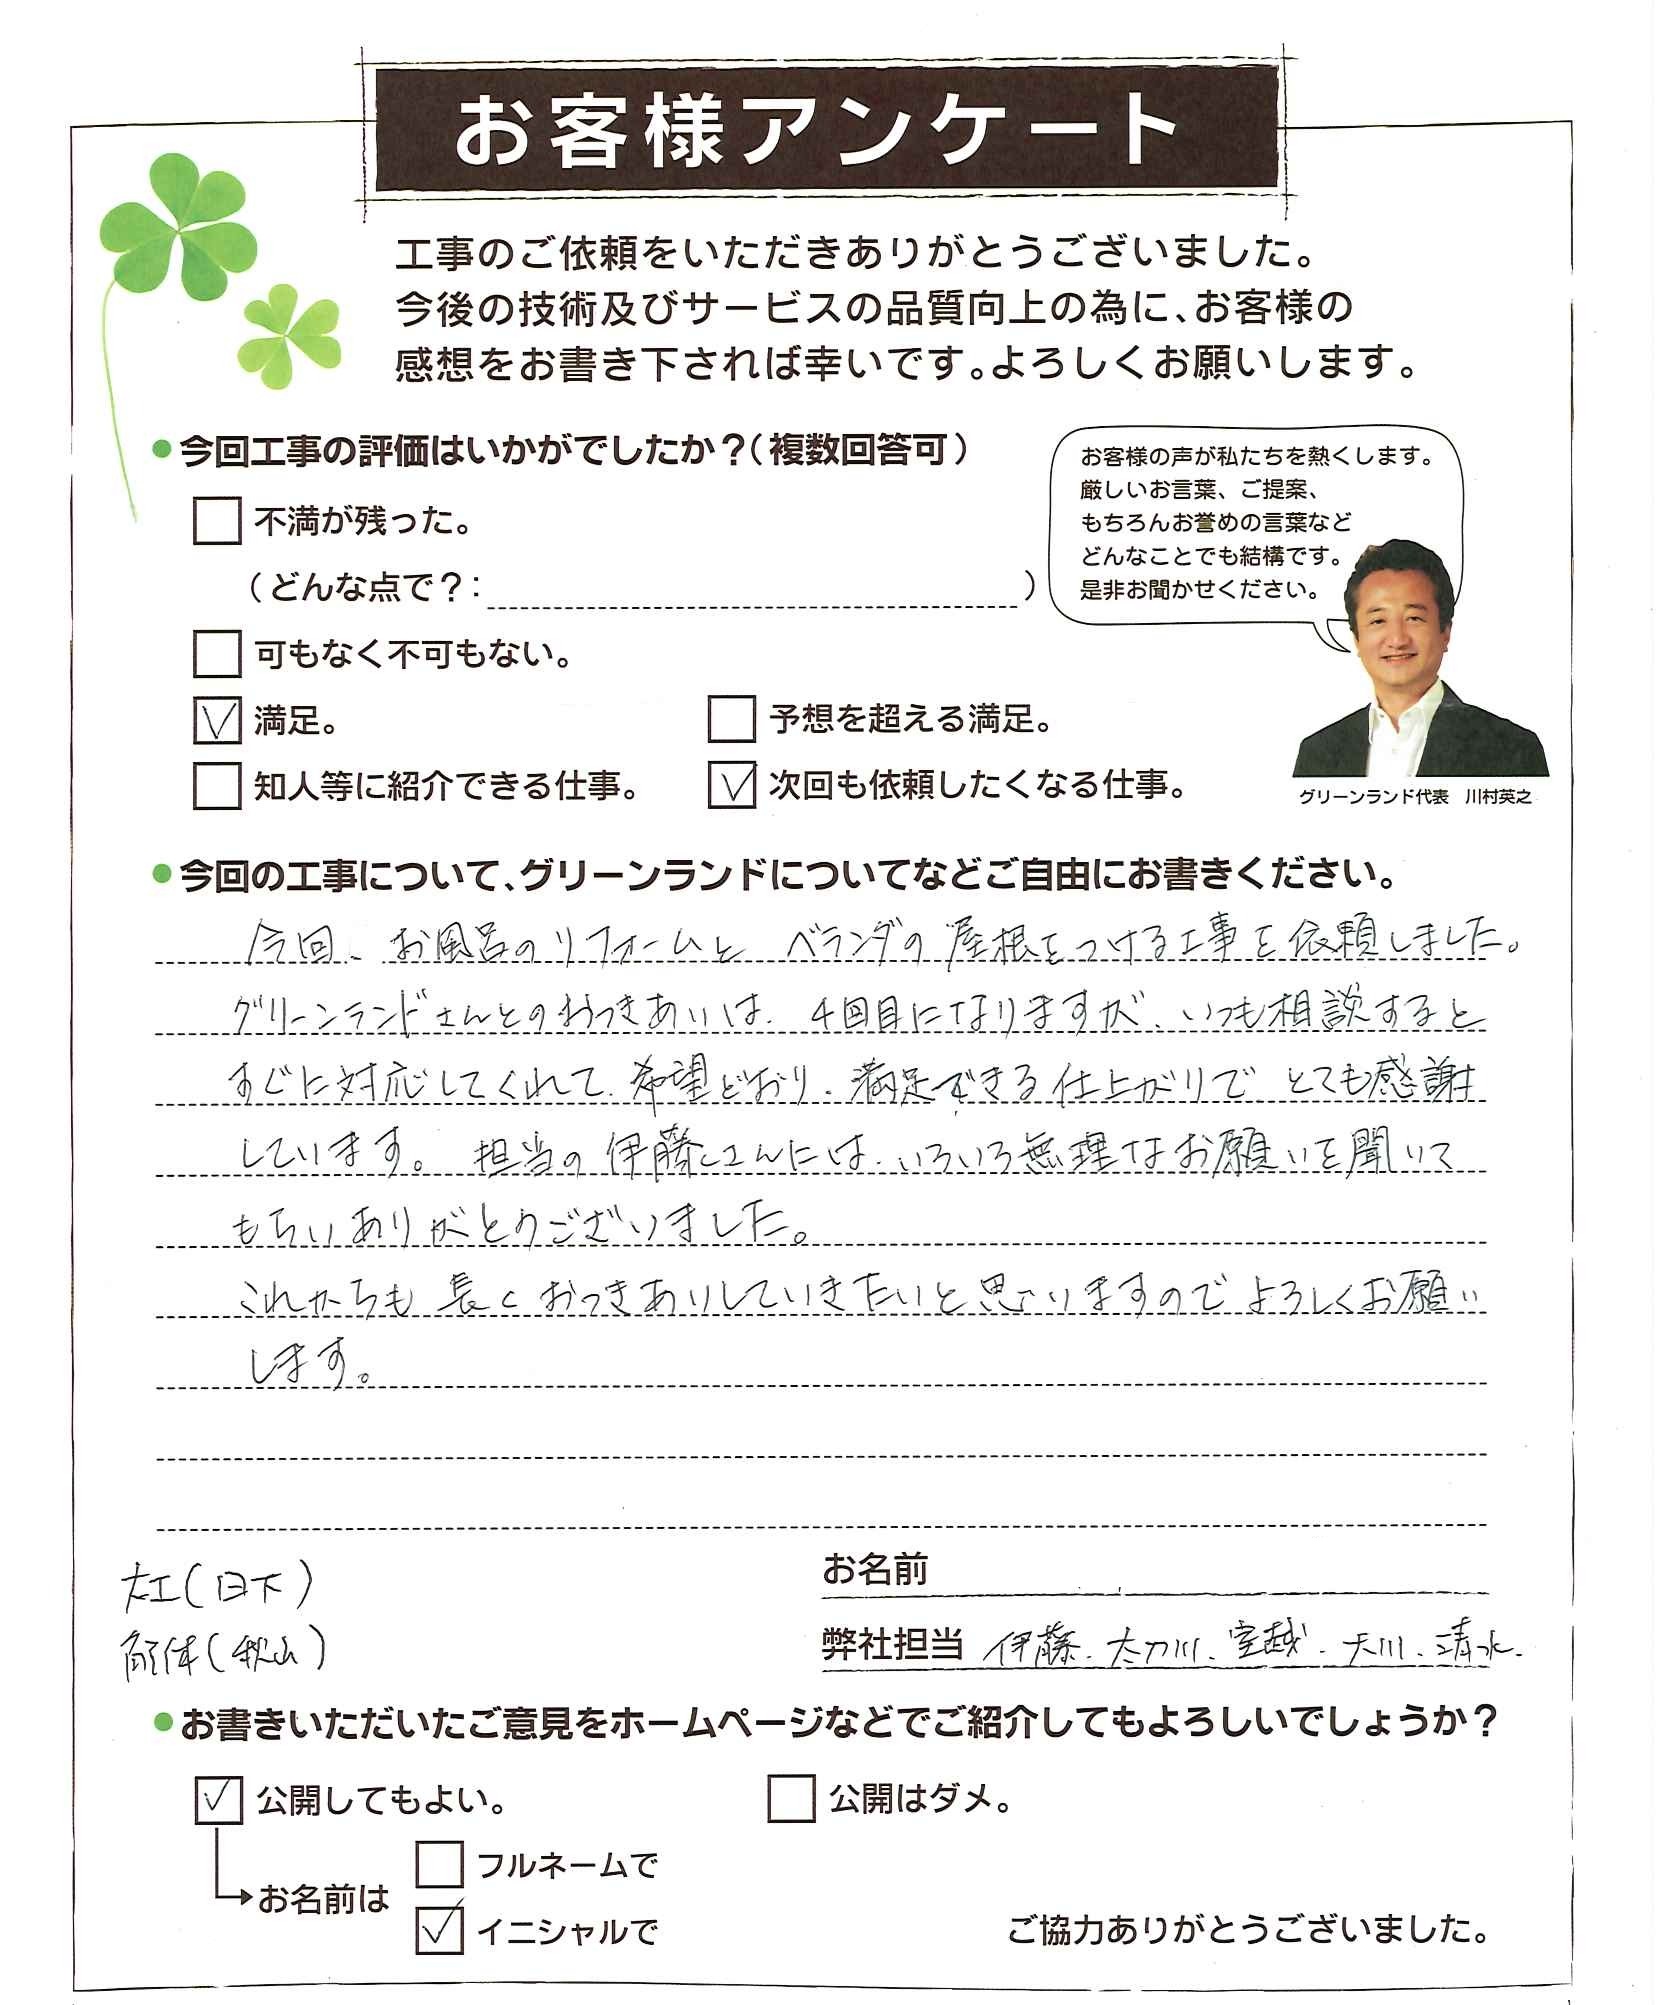 お客様アンケート
工事のご依頼をいただきありがとうございました。
今後の技術及びサービスの品質向上の為に、お客様の
感想をお書き下されば幸いです。よろしくお願いします。
●今回工事の評価はいかがでしたか？（複数回答可）
不満が残った。
（どんな点で？：　）
可もなく不可もない。
満足。
予想を超える満足。
知人等に紹介できる仕事。
次回も依頼したくなる仕事。
お客様の声が私たちを熱くします。
厳しいお言葉、ご提案、
もちろんお誉めの言葉など
どんなことでも結構です。
是非お聞かせください。
グリーンランド代表　川村英之
●今回の工事について、グリーンランドについてなどご自由にお書きください。
今回、お風呂のリフォームと ベランダの屋根をつける工事を依頼しました。
グリーンランドさんとのおつきあいは、4回目になりますが、いつも相談すると
すぐに対応してくれて、希望どおり、満足できる仕上がりで とても感謝
しています。 担当の伊藤さんには、いろいろ無理なお願いを聞いて
もらいありがとうございました。
これからも長くおつきあいしていきたいと思いますのでよろしくお願い
します。
大工(日下)
解体(秋山)
お名前
弊社担当 伊藤、太刀川、宮越、天川、清水。
●お書きいただいたご意見をホームページなどでご紹介してもよろしいでしょうか？
公開してもよい。
公開はダメ。
お名前は
フルネームで
イニシャルで
ご協力ありがとうございました。